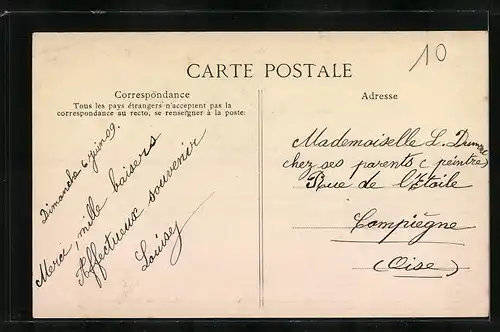 10
CARTE POSTALE
Correspondance
Tous les pays étrangers n'acceptent pas la
correspondance au recto, se renseigner à la poste.
Dimanche 6 Juin 09.
Merci, mille baisers
Affectueux souvenir
Louisey
Adresse
Mademoiselle L.
chez ses parents (peintre)
Rue de l'Etoile
Compiègne
(Oise)